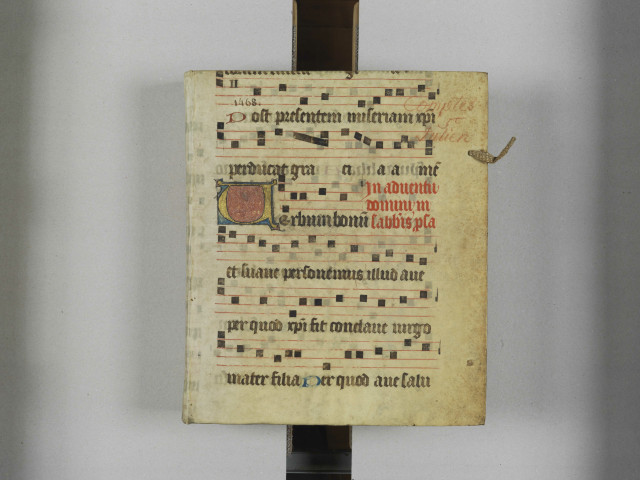 1468.
Post presentem miseriam xpi
perducat gra ci a a amē
In adventu
domini in
sabb'is psa
Verbum bonū
et suave personemus illud ave
per quod xpi fit conclave virgo
mater filia Per quod ave salu
Comptes
Julien